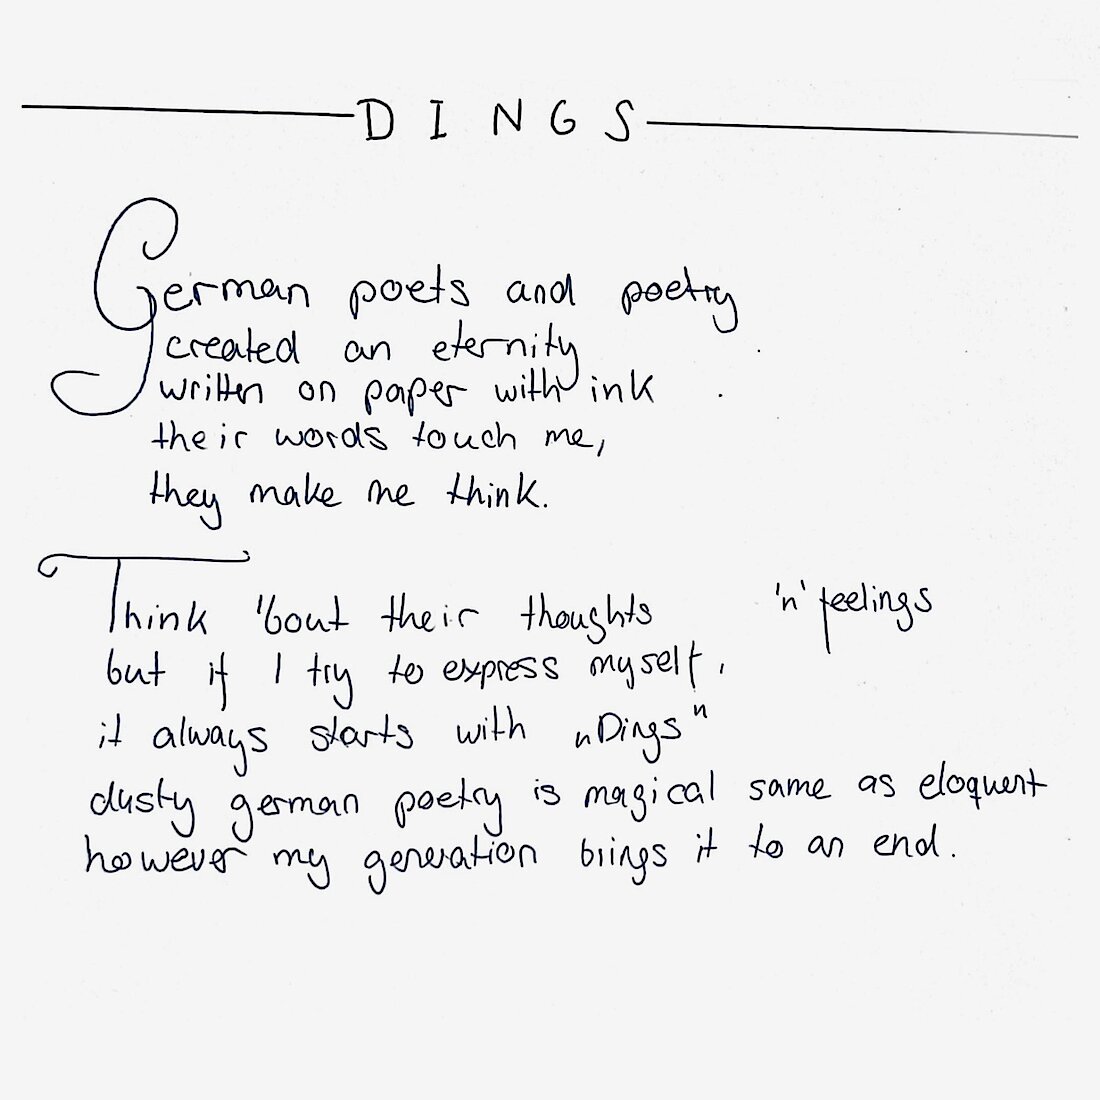 DINGS
German poets and poetry
created an eternity
written on paper with ink
their words touch me,
they make me think.
Think 'bout their thoughts 'n' feelings
but if I try to express myself,
it always starts with „Dings"
dusty german poetry is magical same as eloquent
however my generation brings it to an end.